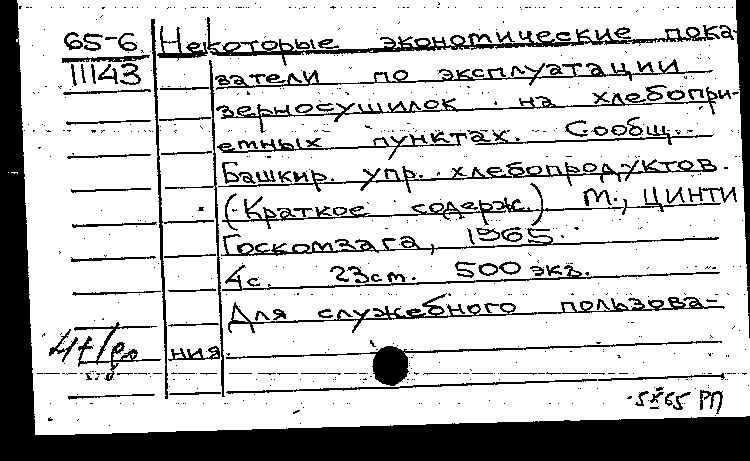 65-6 Некоторые экономические пока-
11143 затели по эксплуатации
зерносушилок на хлебопри-
емных пунктах. Сообщ.
Башкир. упр. хлебопродуктов.
(Краткое содерж.) М., ЦИНТИ
Госкомзага, 1965.
4с. 23см. 500 экз.
Для служебного пользова-
ния.
5 X 65 РП